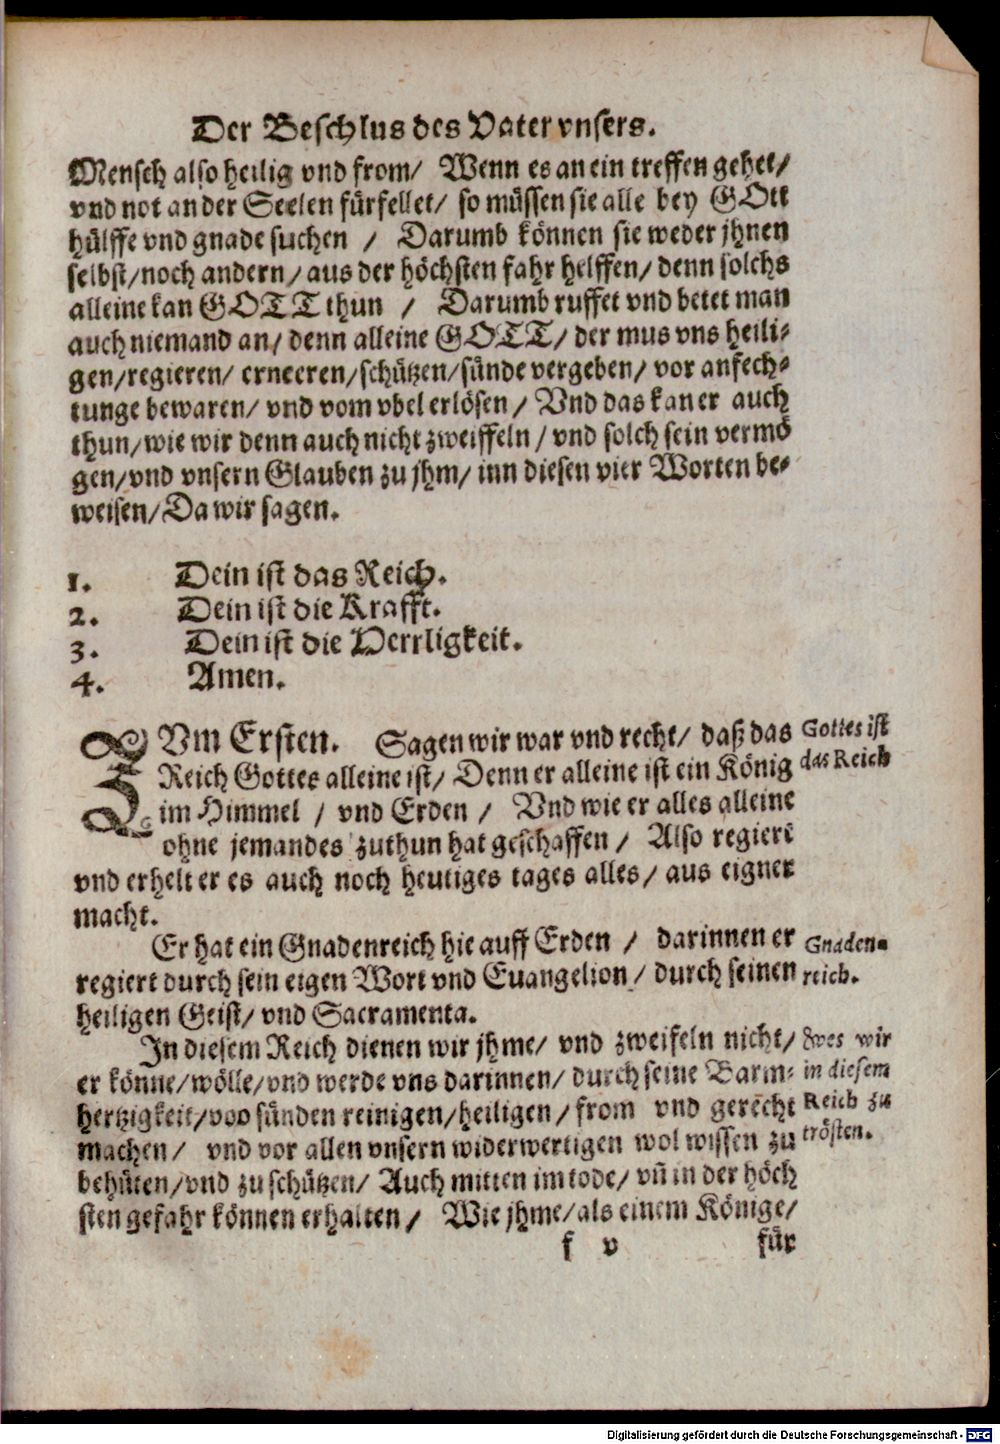 Der Beschlus des Vater vnsers.
Mensch also heilig vnd from/ Wenn es an ein treffen gehet/
vnd not an der Seelen fürfellet/ so müssen sie alle bey GOtt
hülffe vnd gnade suchen / Darumb können sie weder jhnen
selbst/noch andern/aus der höchsten fahr helffen/ denn solchs
alleine kan GOTT thun / Darumb ruffet vnd betet man
auch niemand an/ denn alleine GOTT/ der mus vns heili-
gen/regieren/ erneeren/schützen/sünde vergeben/ vor anfech-
tunge bewaren/ vnd vom vbel erlösen/ Vnd das kan er auch
thun/wie wir denn auch nicht zweiffeln/vnd solch sein vermö
gen/vnd vnsern Glauben zu jhm/ inn diesen vier Worten be-
weisen/Da wir sagen.
1. Dein ist das Reich.
2. Dein ist die Krafft.
3. Dein ist die Herrligkeit.
4. Amen.
ZVm Ersten. Sagen wir war vnd recht/ daß das
Gottes ist
Reich Gottes alleine ist/ Denn er alleine ist ein König
das Reich
im Himmel / vnd Erden / Vnd wie er alles alleine
ohne jemandes zuthun hat geschaffen / Also regiert
vnd erhelt er es auch noch heutiges tages alles/ aus eigner
macht.
Er hat ein Gnadenreich hie auff Erden / darinnen er
Gnaden-
regiert durch sein eigen Wort vnd Euangelion/ durch seinen
reich.
heiligen Geist/ vnd Sacramenta.
In diesem Reich dienen wir jhme/ vnd zweifeln nicht/
Wes wir
er könne/wölle/vnd werde vns darinnen/ durch seine Barm-
in diesem
hertzigkeit/voo sünden reinigen/heiligen/from vnd gerecht
Reich zu
machen/ vnd vor allen vnsern widerwertigen wol wissen zu
trösten.
behüten/vnd zu schützen/ Auch mitten im tode/ vñ in der höch
sten gefahr können erhalten/ Wie jhme/als einem Könige/
f v für
Digitalisierung gefördert durch die Deutsche Forschungsgemeinschaft - DFG